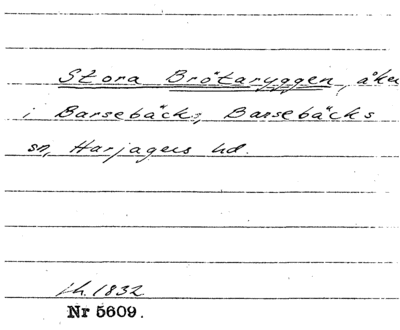 Stora Brötaryggen, åker
i Barsebäck, Barsebäcks
sn, Harjagers hd.
sh. 1832
Nr 5609.